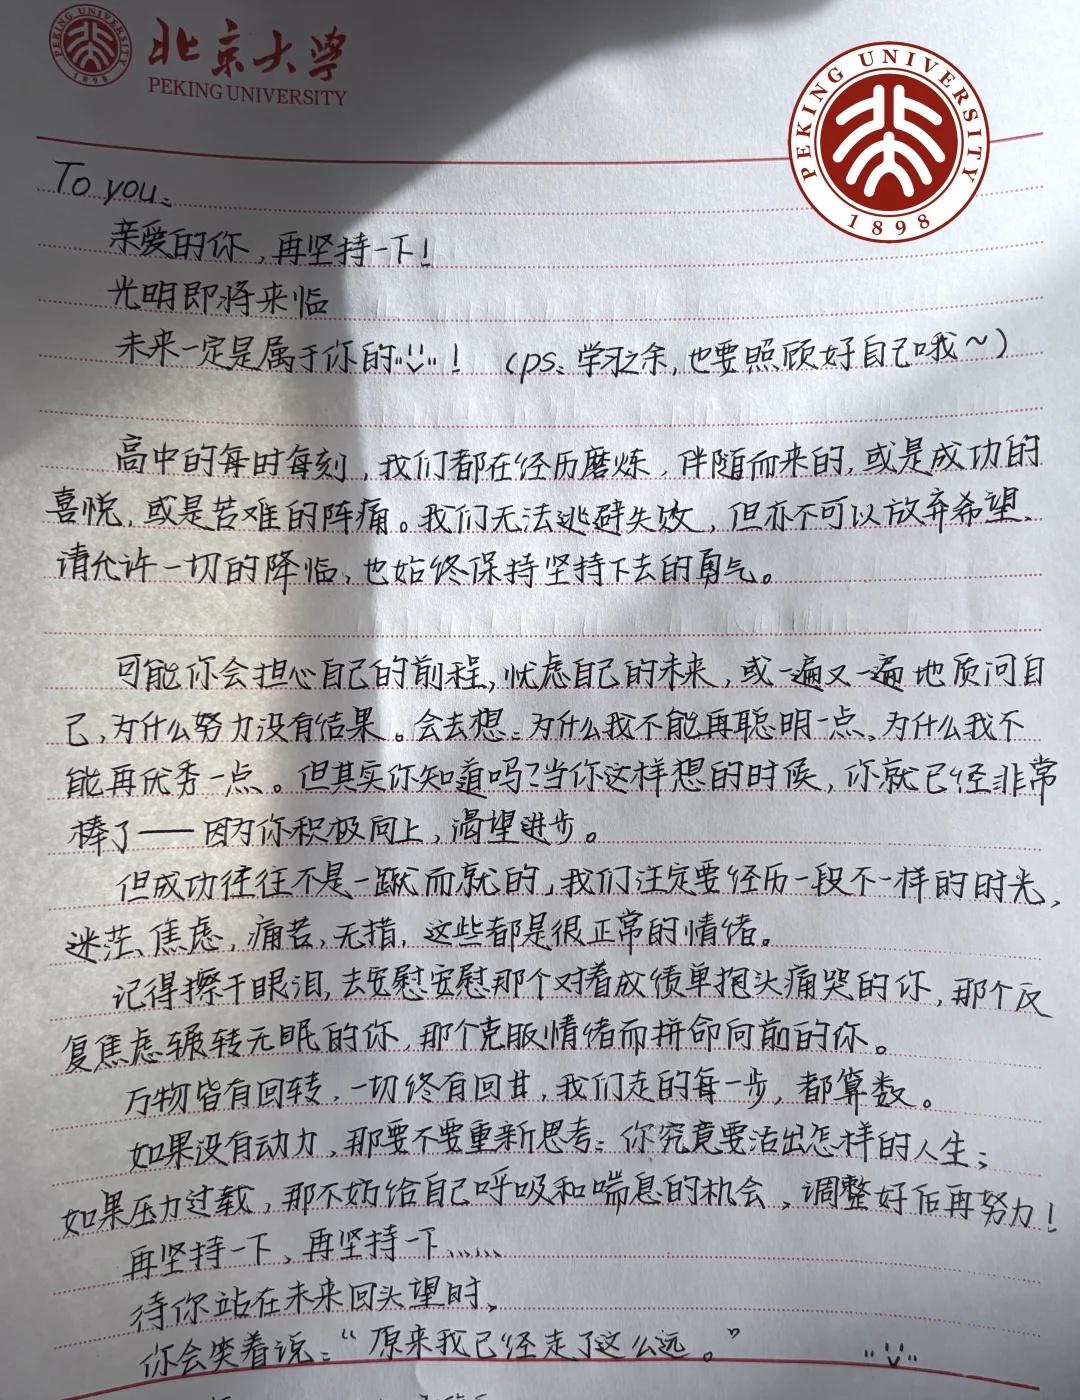 北京大学
PEKING UNIVERSITY
PEKING UNIVERSITY
1898
PEKING UNIVERSITY
1898
To you:
亲爱的你,再坚持一下!
光明即将来临
未来一定是属于你的! (ps:学习之余,也要照顾好自己哦~)
高中的每时每刻,我们都在经历磨炼,伴随而来的,或是成功的
喜悦,或是苦难的阵痛。我们无法逃避失败,但亦不可以放弃希望、
请允许一切的降临,也始终保持坚持下去的勇气。
可能你会担心自己的前程,忧虑自己的未来,或一遍又一遍地质问自
己,为什么努力没有结果。会去想:为什么我不能再聪明一点、为什么我不
能再优秀一点。但其实你知道吗?当你这样想的时候,你就已经非常
棒了——因为你积极向上,渴望进步。
但成功往往不是一蹴而就的,我们注定要经历一段不一样的时光,
迷茫、焦虑,痛苦,无措,这些都是很正常的情绪。
记得擦干眼泪,去安慰安慰那个对着成绩单抱头痛哭的你,那个反
复焦虑辗转无眠的你,那个克服情绪而拼命向前的你。
万物皆有回转,一切终有回甘,我们走的每一步,都算数。
如果没有动力,那要不要重新思考:你究竟要活出怎样的人生;
如果压力过载,那不妨给自己呼吸和喘息的机会,调整好后再努力!
再坚持一下、再坚持一下……
待你站在未来回头望时,
你会笑着说:“原来我已经走了这么远。”